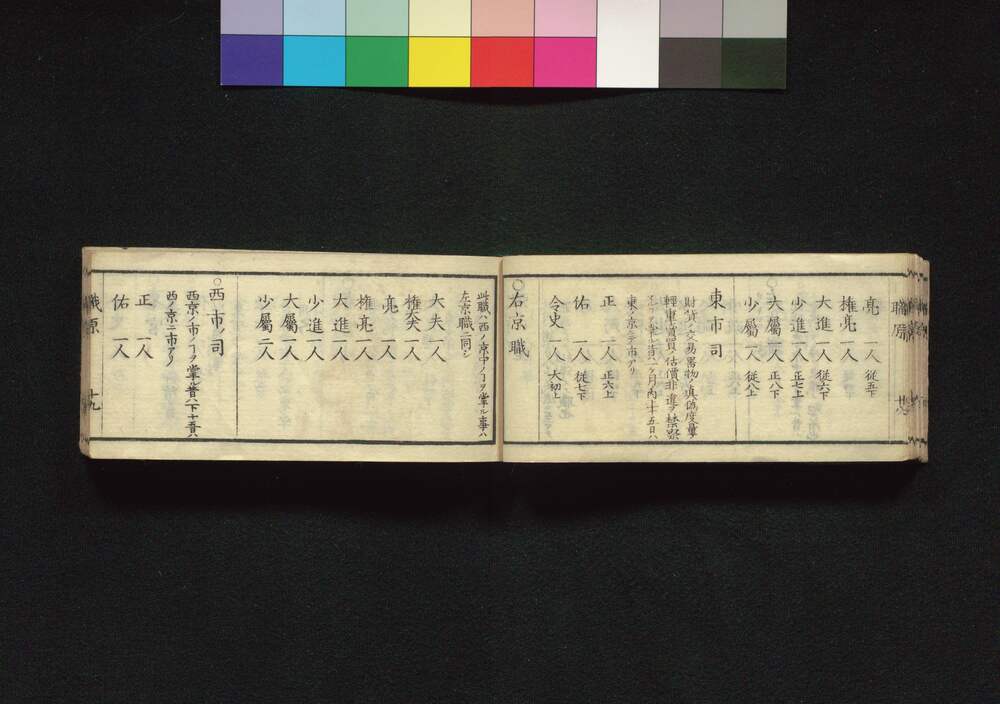 職原
亮 一人 従五下
権亮 一人
大進 一人 従六下
少進 一人 正七上
大屬 一人 正八下
少屬 一人 従八上
東市司
財貨ノ交易器物ノ真偽度量ノ
輕重賣買ノ估價非違ヲ禁察
東ノ京ニテ市アリ
正 一人 正六上
佑 一人 従七下
令史 一人 大初上
○右京職
此職ハ西ノ京中ノヿヲ掌ル事ハ
左京職ニ同シ
大夫 一人
権大夫 一人
亮 一人
権亮 一人
大進 一人
少進 一人
大屬 一人
少屬 二人
○西市ノ司
西京ノ市ノヿヲ掌ル昔ハ下十五日ハ
西ノ京ニ市アリ
正 一人
佑 一人
職原 十九